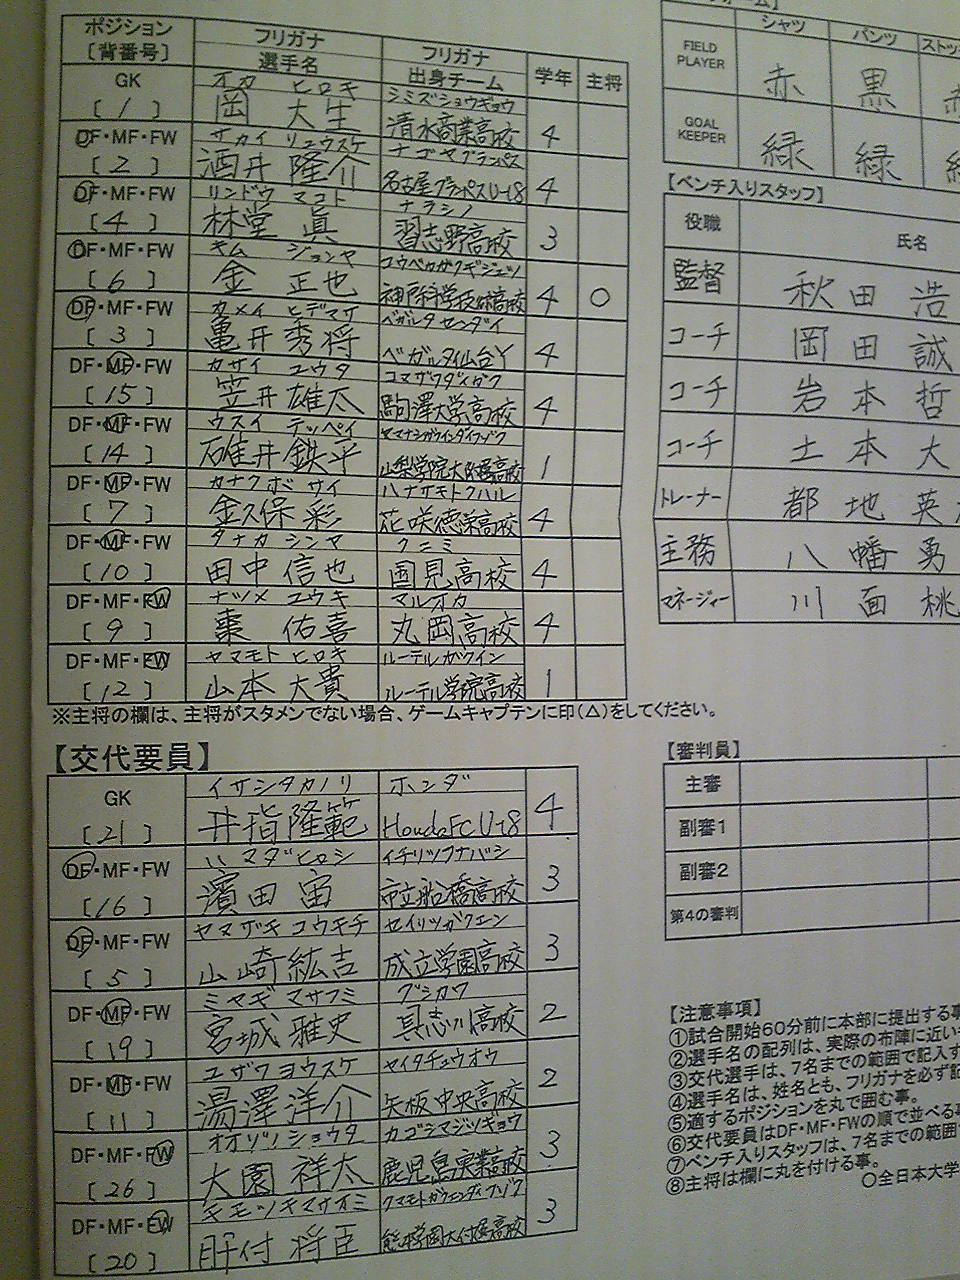 ポジション
[背番号]
フリガナ
選手名
フリガナ
出身チーム
学年
主将
GK
[1]
オカ ヒロキ
岡 大生
シミズショウギョウ
清水商業高校
4
DF・MF・FW
[2]
サカイ リュウスケ
酒井 隆介
ナゴヤグランパス
名古屋グランパスU-18
4
DF・MF・FW
[4]
リンドウ マコト
林堂 眞
ナラシノ
習志野高校
3
DF・MF・FW
[6]
キム ジョンヤ
金 正也
コウベカガクギジュツ
神戸科学技術高校
4
○
DF・MF・FW
[3]
カメイ ヒデマサ
亀井秀将
ベガルタセンダイ
ベガルタ仙台Y
4
DF・MF・FW
[15]
カサイ ユウタ
笠井雄太
コマザワダイガク
駒澤大学高校
4
DF・MF・FW
[14]
ウスイ テッペイ
碓井鉄平
山梨学院大附属高校
1
DF・MF・FW
[7]
カナクボ サイ
金久保彩
ハナサキトクハル
花咲徳栄高校
4
DF・MF・FW
[10]
タナカ シンヤ
田中信也
クニミ
国見高校
4
DF・MF・FW
[9]
ナツメ ユウキ
棗 佑喜
マルオカ
丸岡高校
4
DF・MF・FW
[12]
ヤマモト ヒロキ
山本大貴
ルーテルガクイン
ルーテル学院高校
1
※主将の欄は、主将がスタメンでない場合、ゲームキャプテンに印(△)をしてください。
【交代要員】
GK
[21]
イサシタカノリ
井指隆範
ホンダ
HondaFC U-18
4
DF・MF・FW
[16]
ハマダヒロシ
濱田 宙
イチリツフナバシ
市立船橋高校
3
DF・MF・FW
[5]
ヤマザキ コウキチ
山崎紘吉
セイリツガクエン
成立学園高校
3
DF・MF・FW
[19]
ミヤギ マサフミ
宮城雅史
グシカワ
具志川高校
2
DF・MF・FW
[11]
ユザワ ヨウスケ
湯澤洋介
ヤイタチュウオウ
矢板中央高校
2
DF・MF・FW
[26]
オオゾノショウタ
大園祥太
カゴシマジツギョウ
鹿児島実業高校
3
DF・MF・FW
[20]
キモツキマサオミ
肝付将臣
熊本学園大付属高校
3
シャツ
パンツ
FIELD
PLAYER
赤
黒
GOAL
KEEPER
緑
緑
【ベンチ入りスタッフ】
役職
氏名
監督
秋田 浩
コーチ
岡田 誠
コーチ
岩本 哲
コーチ
土本 大
トレーナー
都地 英
主務
八幡 勇
マネージャー
川面 桃
【審判員】
主審
副審1
副審2
第4の審判
【注意事項】
①試合開始60分前に本部に提出する事
②選手名の配列は、実際の布陣に近い
③交代選手は、7名までの範囲で記入す
④選手名は、姓名とも、フリガナを必ず記
⑤適するポジションを丸で囲む事。
⑥交代要員はDF・MF・FWの順で並べる事
⑦ベンチ入りスタッフは、7名までの範囲
⑧主将は欄に丸を付ける事。
○全日本大学